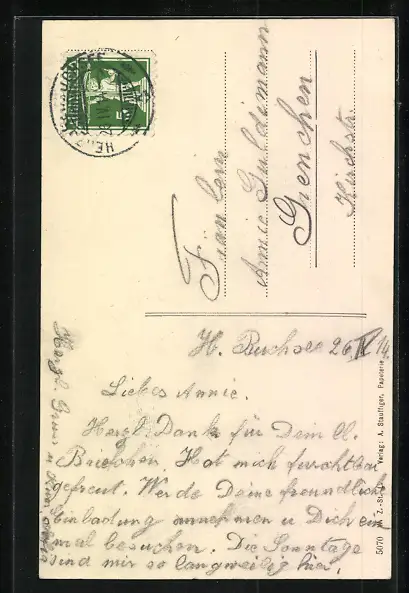 Fräulein
Annie Guldimann
Grenchen
Kirchstr.
H. Buchsee 26 IV 14.
Liebes Annie.
Herzl. Dank für Dein lb.
Briefchen. Hat mich furchtbar
gefreut. Werde Deine freundlich
Einladung annehmen u Dich ein
mal besuchen. Die Sonntage
sind mir so langweilig hier.
Herzl. Gruss u Kuss
5070 Verlag: A. Stauffiger, Papeterie